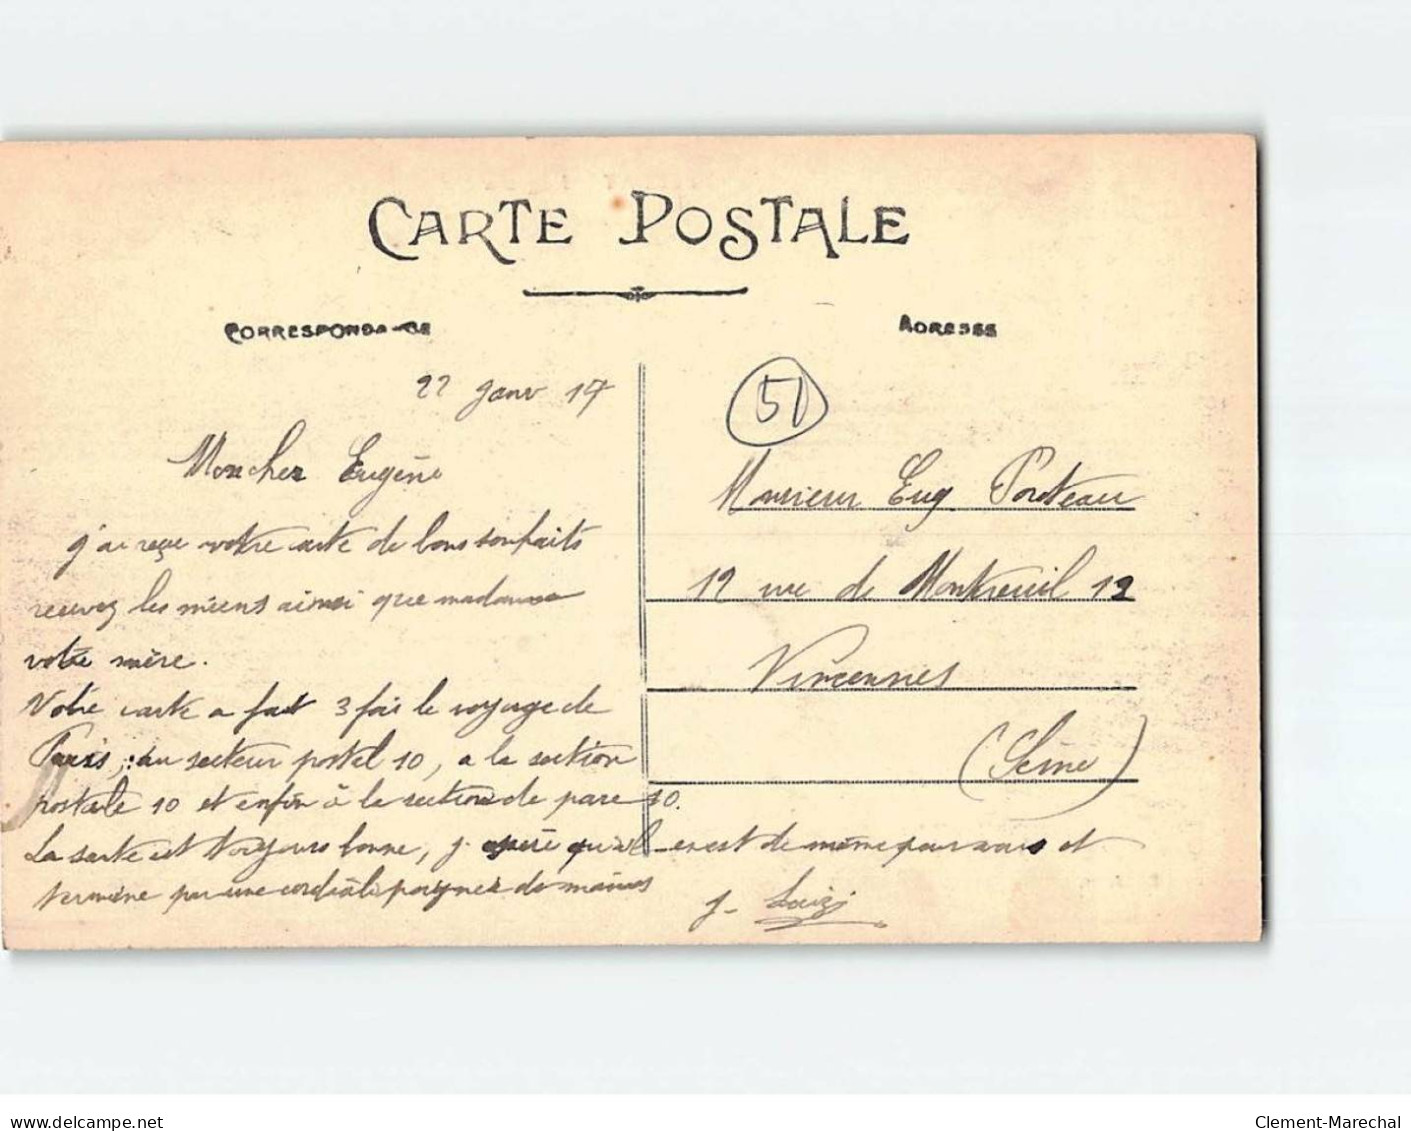 CARTE POSTALE
CORRESPONDANCE
ADRESSE
22 janv 17
51
Mon cher Eugène
j'ai reçu votre carte de bons souhaits
recevez les miens ainsi que madame
votre mère.
Votre carte a fait 3 fois le voyage de
Paris, au secteur postal 10, a la section
postale 10 et enfin à la section de parc 10.
La santé est toujours bonne, j'espère qu'il en est de même pour vous et
termine par une cordiale poignée de mains
Monsieur Eug
12 rue de Montreuil 12
Vincennes
(Seine)
delcampe.net
Clement-Marechal